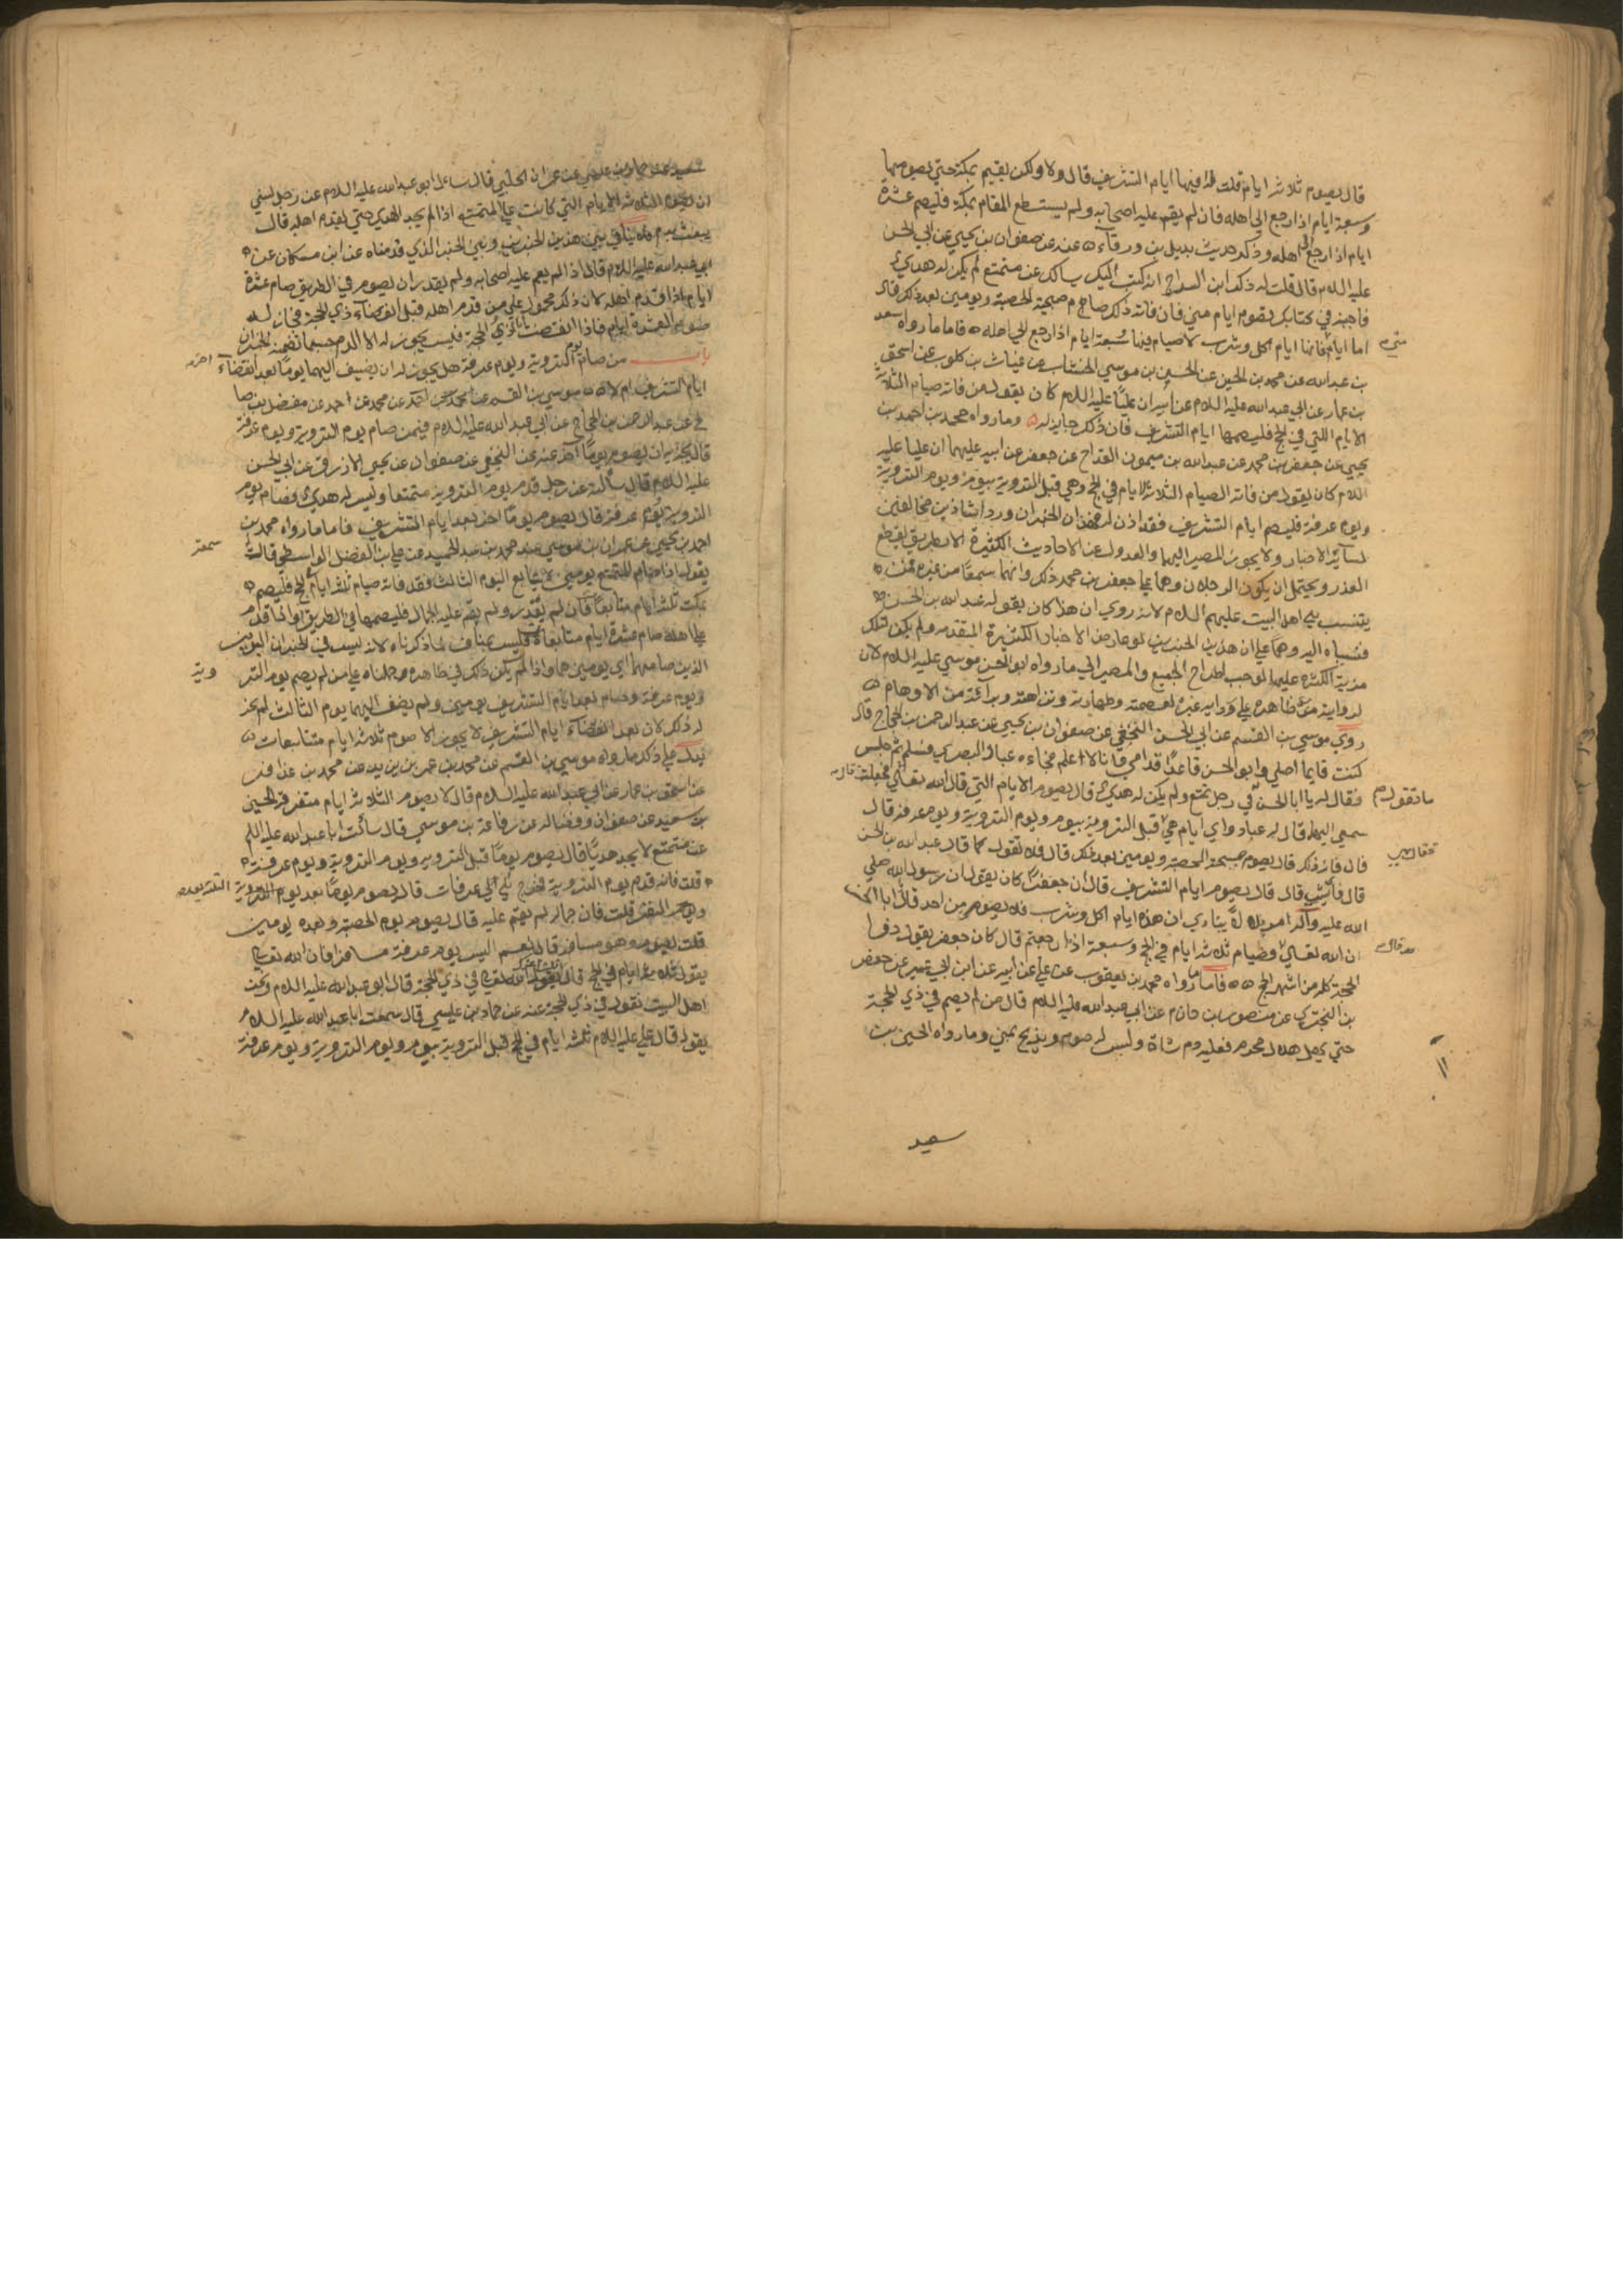 قال يصوم ثلاثة ايام قلت له افيها ايام التشريق قال ولا ولكن يقيم بمكة حتى يصومها
وسبعة ايام اذا رجع الى اهله فان لم يقم عليه اصحابه ولم يستطع المقام بمكة فليصم عشرة
ايام اذا رجع الى اهله وذكر حديث بديل بن ورقآء عنه عن صفوان بن يحيى عن ابي الحسن
عليه السلام قال قلت له ذكر ابن السراج انه كتب اليك يسالك عن متمتع لم يكن له هدي
فاجبته في كتابك يصوم ايام منى فان فاته ذلك صام صبيحة الحصبة ويومين بعد ذلك قال
اما ايام منى فانها ايام اكل وشرب لا صيام فيها وسبعة ايام اذا رجع الى اهله فاما ما رواه سعد
بن عبدالله عن محمد بن الحسين عن الحسن بن موسى الخشاب عن غياث بن كلوب عن اسحق
بن عمار عن ابي عبدالله عليه السلام عن ابيه ان عليا عليه السلام كان يقول من فاته صيام الثلاثة
الايام اللتي في الحج فليصمها ايام التشريق فان ذلك جايز له وما رواه محمد بن احمد بن
يحيى عن جعفر بن محمد عن عبدالله بن ميمون القداح عن جعفر عن ابيه عليهما ان عليا عليه
السلام كان يقول من فاته الصيام الثلاثة الايام في الحج وهي قبل التروية بيوم ويوم التروية
ويوم عرفة فليصم ايام التشريق فقد اذن له فهذان الخبران وردا شاذين مخالفين
لسآئر الاخبار ولا يجوز المصير اليهما والعدول عن الاحاديث الكثيرة الا بطريق يقطع
العذر ويحتمل ان يكون الرجلان وهما على جعفر بن محمد ذلك وانهما سمعا من غيره ممن
ينتسب الى اهل البيت عليهم السلام لانه روي ان هذا كان يقوله عبدالله بن الحسن
فنسباه اليه وهما على ان هذين الخبرين لو عارضا الاخبار الكثيرة المتقدمه ولم يكن لتلك
مزية الكثرة عليهما لوجب اطراح الجميع والمصير الى ما رواه ابو الحسن موسى عليه السلام لان
لروايته مزية ظاهرة على رواية غيره لعصمته وطهارته ونزاهته وبرآئته من الاوهام
روى موسى بن القسم عن ابي الحسن النخعي عن صفوان بن يحيى عن عبدالرحمن بن الحجاج قال
كنت قايما اصلي وابو الحسن قاعدا قدامي وانا لا اعلم فجاءه عباد البصري فسلم ثم جلس
فقال له يا ابا الحسن ما تقول في رجل تمتع ولم يكن له هدي قال يصوم الايام التي قال الله تعالى قال فجعلت
سمعي اليهما قال له عباد واي ايام هي قال قبل التروية بيوم ويوم التروية ويوم عرفة قال
فان فاته ذلك قال يصوم صبيحة الحصبة ويومين بعد ذلك قال فلا تقول كما قال عبدالله بن الحسن
قال فأيش قال قال يصوم ايام التشريق قال ان جعفرا كان يقول ان رسول الله صلى
الله عليه وآله امر بديلا ينادي ان هذه ايام اكل وشرب فلا يصومن احد قال يا ابا الحسن
ان الله تعالى قال فصيام ثلاثة ايام في الحج وسبعة اذا رجعتم قال كان جعفر يقول ذو
الحجة كله من اشهر الحج فاما ما رواه محمد بن يعقوب عن علي عن ابيه عن ابن ابي عمير عن حفص
بن البختري عن منصور بن حازم عن ابي عبدالله عليه السلام قال من لم يصم في ذي الحجة
حتى يهل هلال محرم فعليه دم شاة وليس له صوم ويذبح بمنى وما رواه الحسين بن
سعيد
سعيد عن حماد بن عيسى عن عمران الحلبي قال سئل ابو عبدالله عليه السلام عن رجل نسي
ان يصوم الثلاثة الايام التي كانت على المتمتع اذا لم يجد الهدي حتى يقدم اهله قال
يبعث بدم فلا تنافي بين هذين الخبرين وبين الخبر الذي قدمناه عن ابن مسكان عن
ابي عبدالله عليه السلام قال اذا لم يقم عليه اصحابه ولم يقدر ان يصوم في الطريق صام عشرة
ايام اذا قدم اهله لان ذلك محمول على من قدم اهله قبل انقضآء ذي الحجة فجاز له
صوم العشرة ايام فاذا انقضت ذي الحجة فليس يجوز له الا الدم حسبما تضمنه الخبران
باب من صام يوم التروية ويوم عرفة هل يجوز له ان يضيف اليهما يوما اخر بعد انقضآء
ايام التشريق ام لا موسى بن القسم عن محمد عن احمد عن مفضل بن صا
لح عن عبدالرحمن بن الحجاج عن ابي عبدالله عليه السلام فيمن صام يوم التروية ويوم عرفة
قال يجزيه ان يصوم يوما آخر عنه عن النخعي عن صفوان عن يحيى الازرق عن ابي الحسن
عليه السلام قال سألته عن رجل قدم يوم التروية متمتعا وليس له هدي فصام يوم
التروية ويوم عرفة قال يصوم يوما اخر بعد ايام التشريق فاما ما رواه محمد بن
احمد بن يحيى عن عمران بن موسى عن محمد بن عبدالحميد عن علي بن الفضل الواسطي قال سمعته
يقول اذا صام المتمتع يومين لا يتابع اليوم الثالث فقد فاته صيام ثلثة ايام في الحج فليصم
بمكة ثلثة ايام متتابعا فان لم يقدر ولم يقم عليه الجمال فليصمها في الطريق او اذا قدم
على اهله صام عشرة ايام متتابعات فليس بمناف لما ذكرناه لانه ليس في الخبر ان اليومين
الذين صامهما اي يومين هما واذا لم يكن ذلك في ظاهره حملناه على من لم يصم يوم التروية
ويوم عرفة وصام بعد ايام التشريق يومين ولم يضف اليهما يوم الثالث لم يجز
له ذلك لان بعد انقضآء ايام التشريق لا يجوز الا صوم ثلاثة ايام متتابعات
يدل على ذلك ما رواه موسى بن القسم عن محمد بن عمر بن يزيد عن محمد بن عذافر
عن اسحق بن عمار عن ابي عبدالله عليه السلام قال لا يصوم الثلاثة ايام متفرقة الحسين
بن سعيد عن صفوان وفضاله عن رفاعة بن موسى قال سألت ابا عبدالله عليه السلام
عن متمتع لا يجد هديا قال يصوم يوما قبل التروية ويوم التروية ويوم عرفة
قلت فانه قدم يوم التروية فخرج الى عرفات قال يصوم الثلثة بعد
النفر قلت فان جماله لم يقم عليه قال يصوم يوم الحصبة وبعده يومين
قلت يصوم وهو مسافر قال نعم اليس يوم عرفة مسافرا فان الله تعالى
يقول ثلاثة ايام في الحج قال قلت قول الله تعالى في ذي الحجة قال ابو عبدالله عليه السلام ونحن
اهل البيت نقول في ذي الحجة عنه عن حماد بن عيسى قال سمعت ابا عبدالله عليه السلام
يقول قال علي عليه السلام ثلثة ايام في الحج قبل التروية بيوم ويوم التروية ويوم عرفة